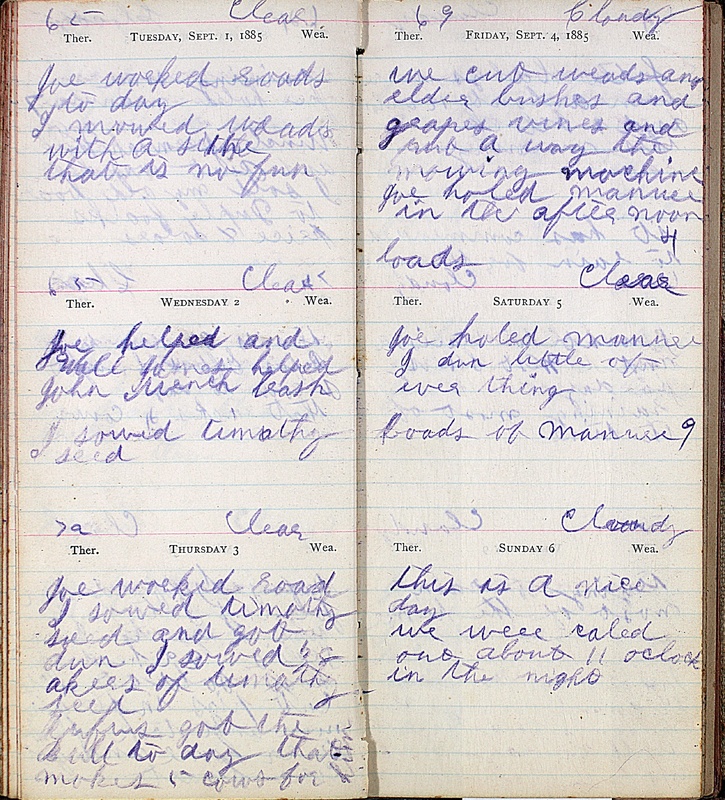 65 Clear
Ther. TUESDAY, SEPT. 1, 1885 Wea.
Joe worked roads
to day
I mowed weads
with a sithe
that is no fun
Clear
Ther. WEDNESDAY 2 Wea.
Joe helped and
Will Jones helped
John
I sowed timothy
seed
Clear
Ther. THURSDAY 3 Wea.
Joe worked road
I sowed timothy
seed and got
dun I sowed
akers of timothy
seed
got the
bull to day that
makes 5 cows for
69 Cloudy
Ther. FRIDAY, SEPT. 4, 1885 Wea.
we cut weads and
elder bushes and
grapes vines and
put a way the
mowing mochine
Joe holed manuer
in the after noon
4
loads
Clear
Ther. SATURDAY 5 Wea.
Joe holed manuer
I dun little of
ever thing
Loads of manuer 9
Cloudy
Ther. SUNDAY 6 Wea.
this is a nice
day
we were caled
out about 11 oclock
in the night